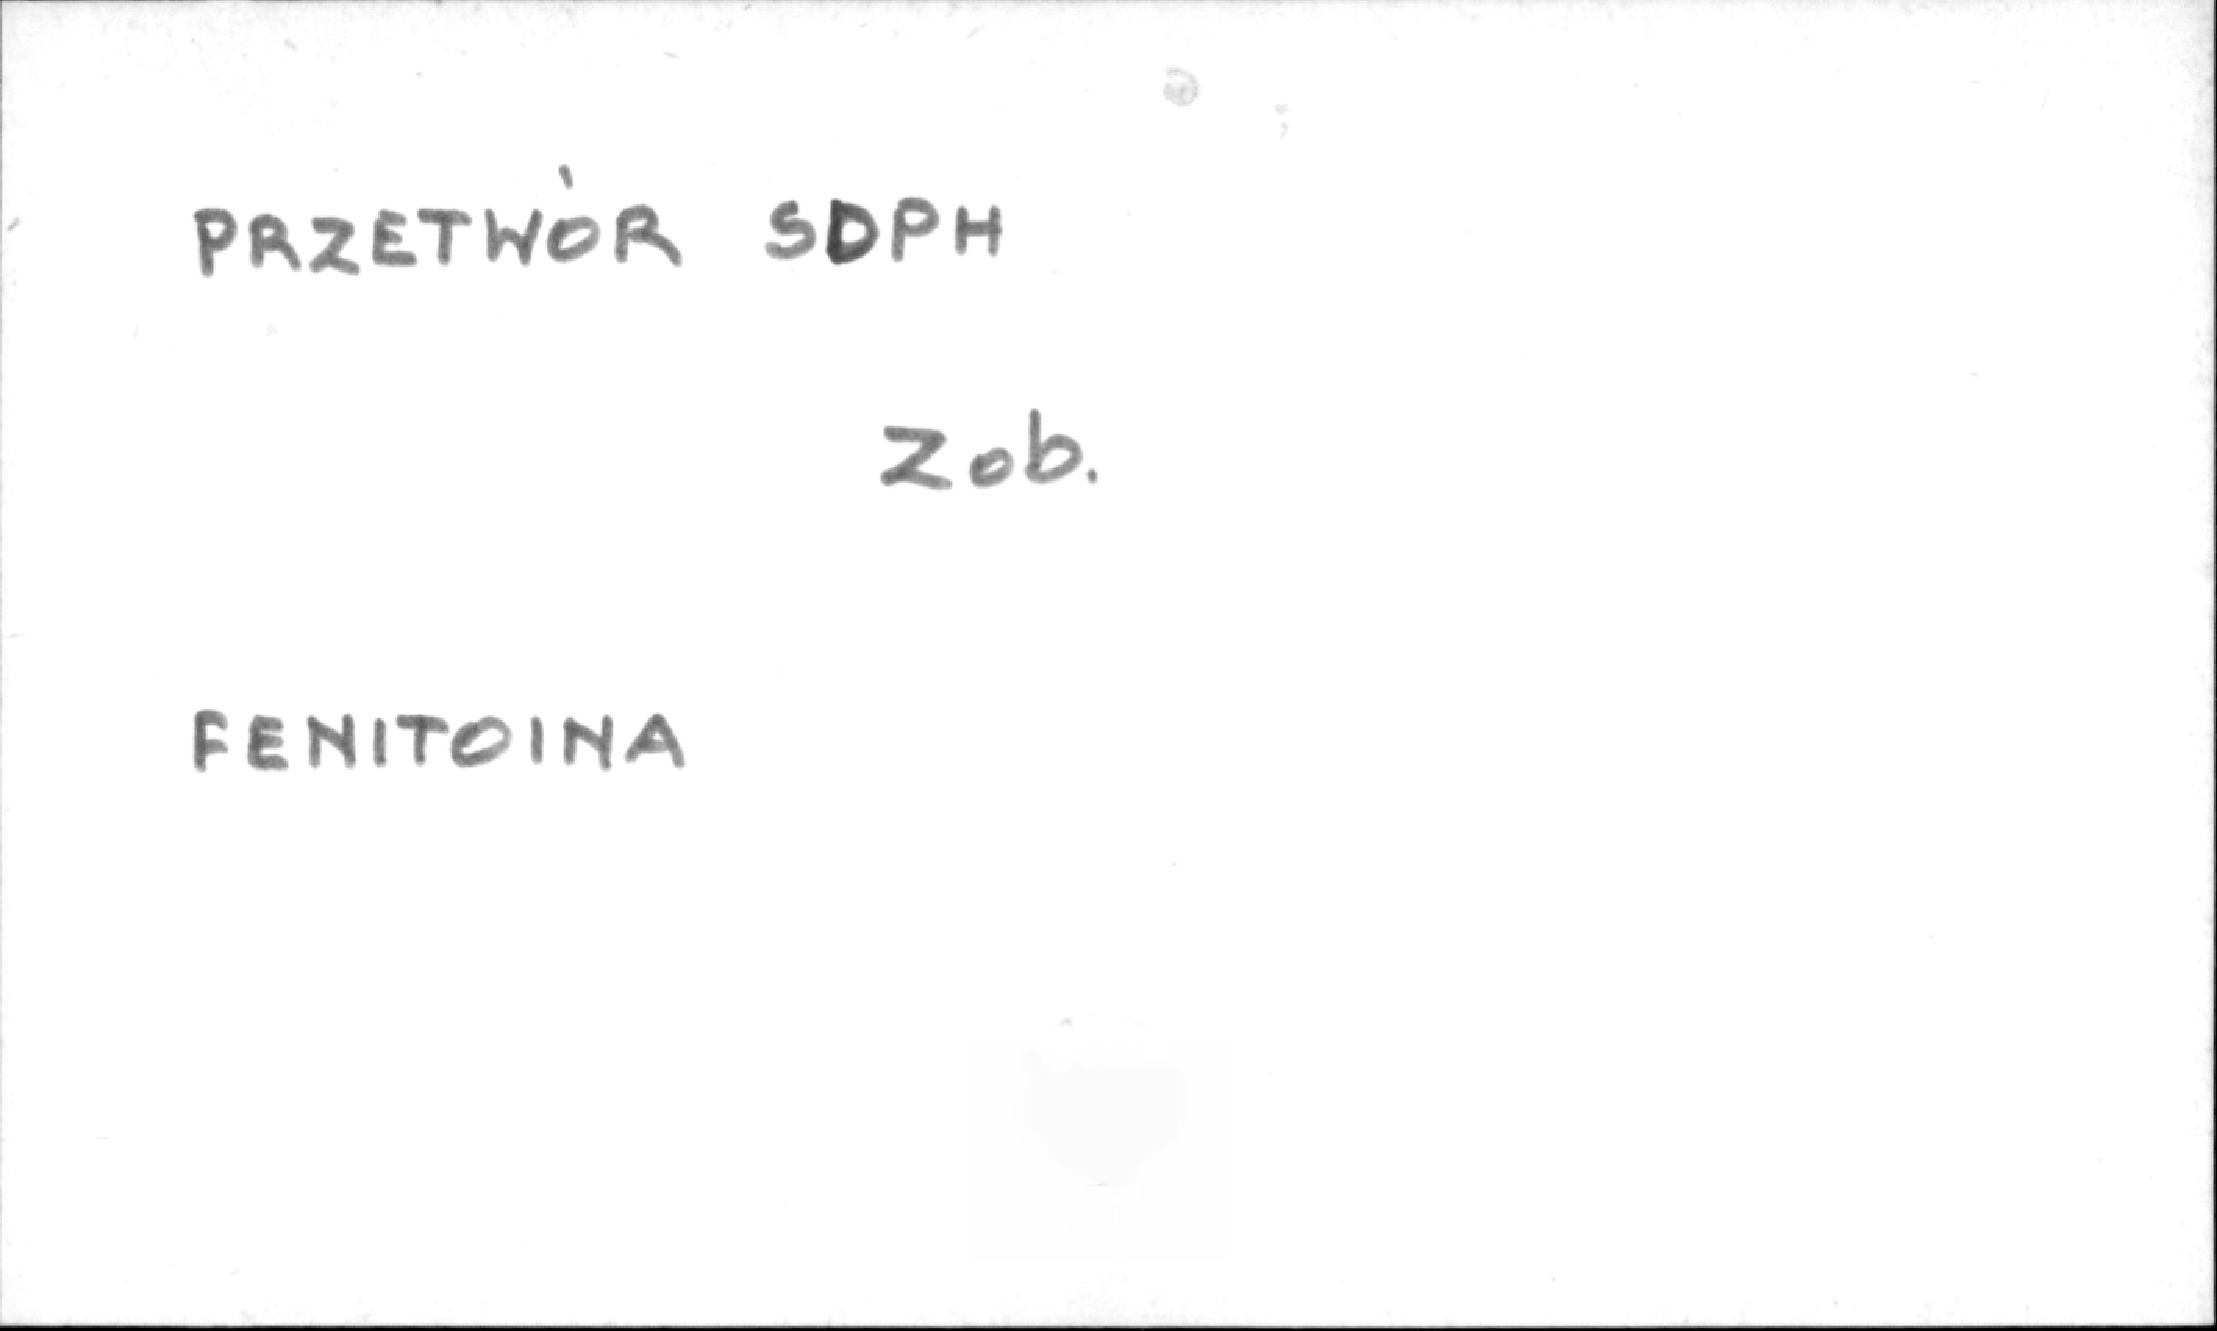 PRZETWÓR SDPH
Zob.
FENITOINA